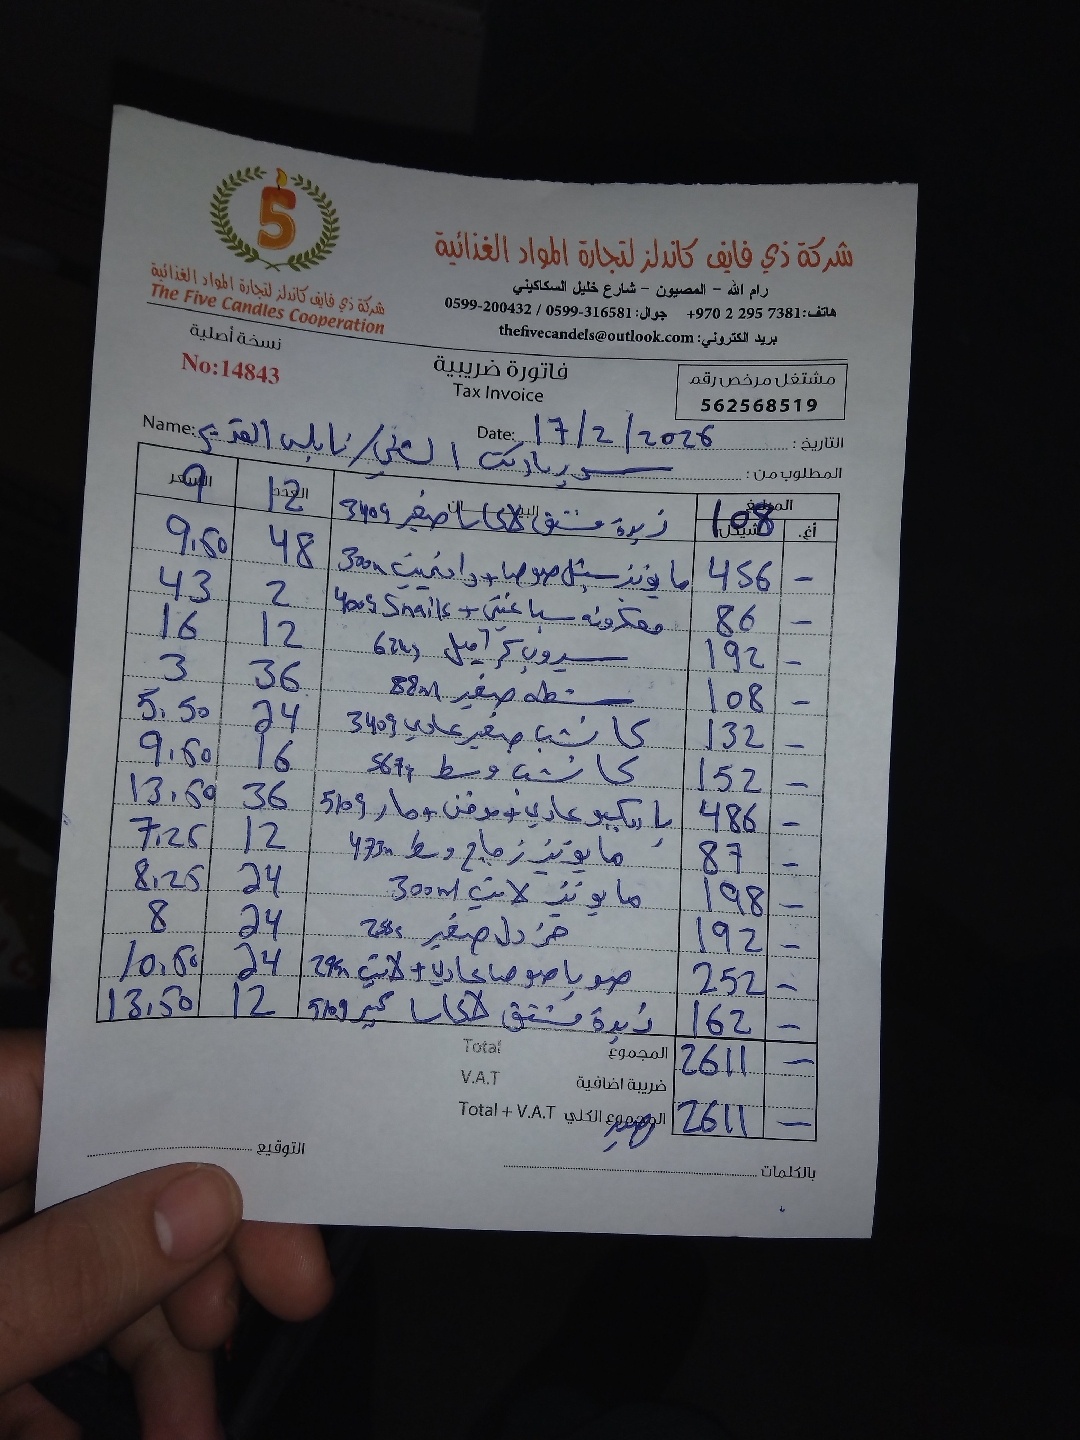 5
شركة ذي فايف كاندلز لتجارة المواد الغذائية
رام الله - المصيون - شارع خليل السكاكيني
هاتف: +970 2 295 7381 جوال: 0599-316581 / 0599-200432
بريد الكتروني: thefivecandels@outlook.com
شركة ذي فايف كاندلز لتجارة المواد الغذائية
The Five Candles Cooperation
نسخة أصلية
No:14843
فاتورة ضريبية
Tax Invoice
مشتغل مرخص رقم
562568519
التاريخ: 17/2/2026 Date:
المطلوب من: سوبرماركت / نابلس Name:
المبلغ البيان العدد السعر
أغ. شيكل
108 زبدة فستق صغير 340g 12 9
- 456 مايونيز + 300m 48 9.50
- 86 معكرونه سباغيتي + Snails 400g 2 43
- 192 سيروب كراميل 624g 12 16
- 108 شطه صغير 88ml 36 3
- 132 كاتشب صغير عادي 340g 24 5.50
- 152 كاتشب وسط 567g 16 9.50
- 486 باربكيو عادي + + حار 510g 36 13.50
- 87 مايونيز زجاج وسط 473m 12 7.25
- 198 مايونيز لايت 300ml 24 8.25
- 192 خردل صغير 24 8
- 252 صويا صوص عادي + لايت 24 10.50
- 162 زبدة فستق كبير 510g 12 13.50
- 2611 المجموع Total
ضريبة اضافية V.A.T
- 2611 المجموع الكلي Total + V.A.T
بالكلمات
التوقيع